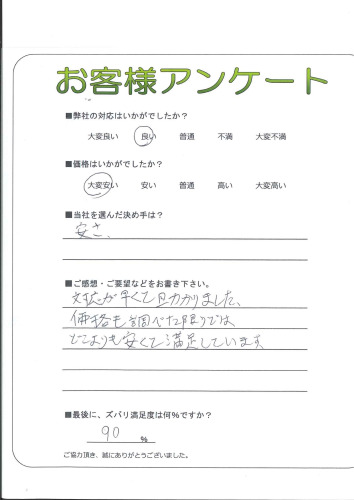 お客様アンケート
■弊社の対応はいかがでしたか?
大変良い 良い 普通 不満 大変不満
■価格はいかがでしたか?
大変安い 安い 普通 高い 大変高い
■当社を選んだ決め手は?
安さ、
■ご感想・ご要望などをお書き下さい。
対応が早くて助かりました、
価格も調べた限りでは
どこよりも安くて満足しています
■最後に、ズバリ満足度は何%ですか?
90 %
ご協力頂き、誠にありがとうございました。